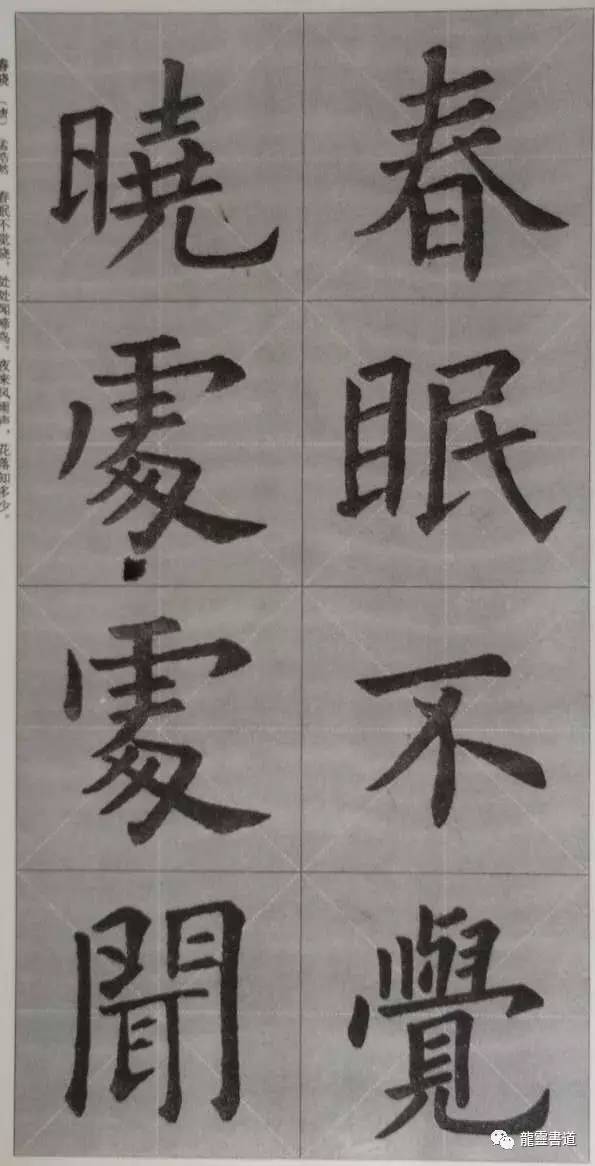 春眠不覺
曉處處聞
春晓 （唐） 孟浩然 春眠不觉晓，处处闻啼鸟。夜来风雨声，花落知多少。
龍靈書道